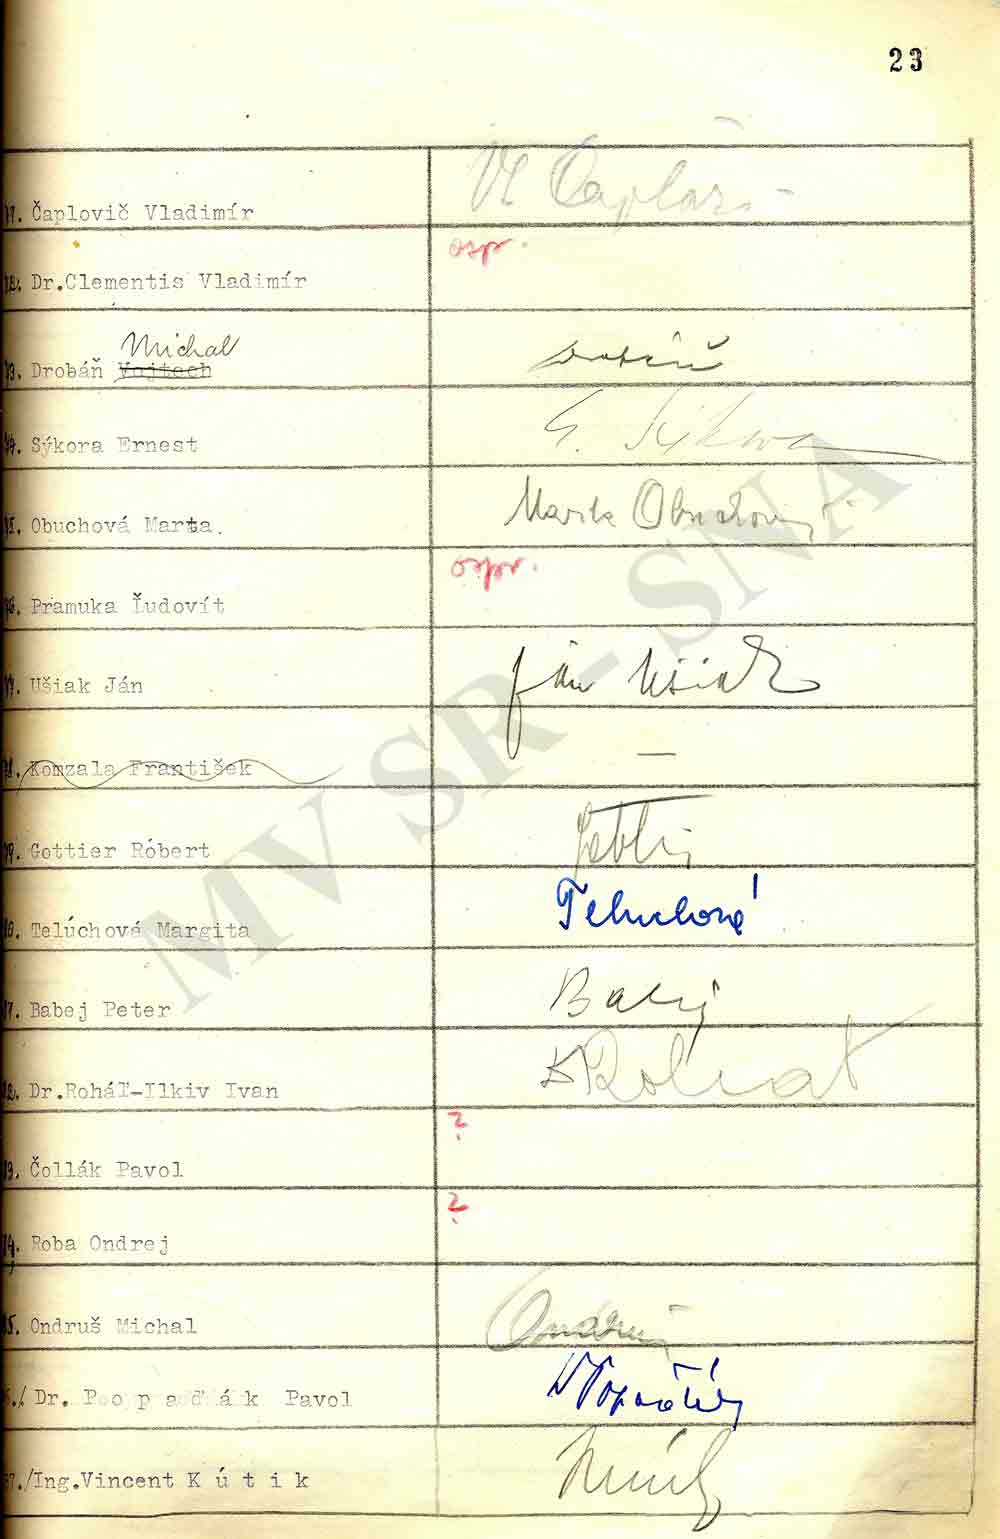 23
Čaplovič Vladimír Vl Čaplovič
Dr.Clementis Vladimír osp.
Michal
Drobáň Vojtech
Sýkora Ernest E. Sýkora
Obuchová Marta. Marta Obuchová
Pramuka Ľudovít ospr.
Ušiak Ján Ján Ušiak
Komzala František —
Gottier Róbert
Telúchová Margita Teluchová
Babej Peter Babej
Dr.Roháľ-Ilkiv Ivan
Čollák Pavol ?
Roba Ondrej ?
Ondruš Michal Ondruš
Dr. P o p a ď á k Pavol
/Ing.Vincent K ú t i k
MV SR - SNA